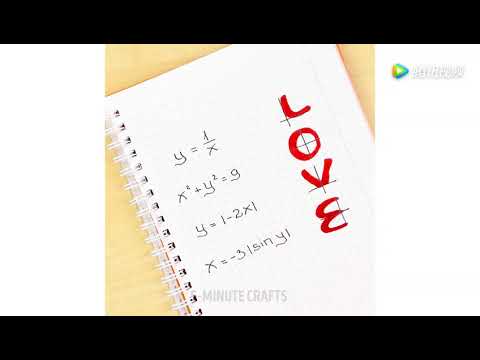 腾讯视频
y = 1/x
x² + y² = 9
y = |-2x|
x = -3|sin y|
L
O
V
E
5-MINUTE CRAFTS